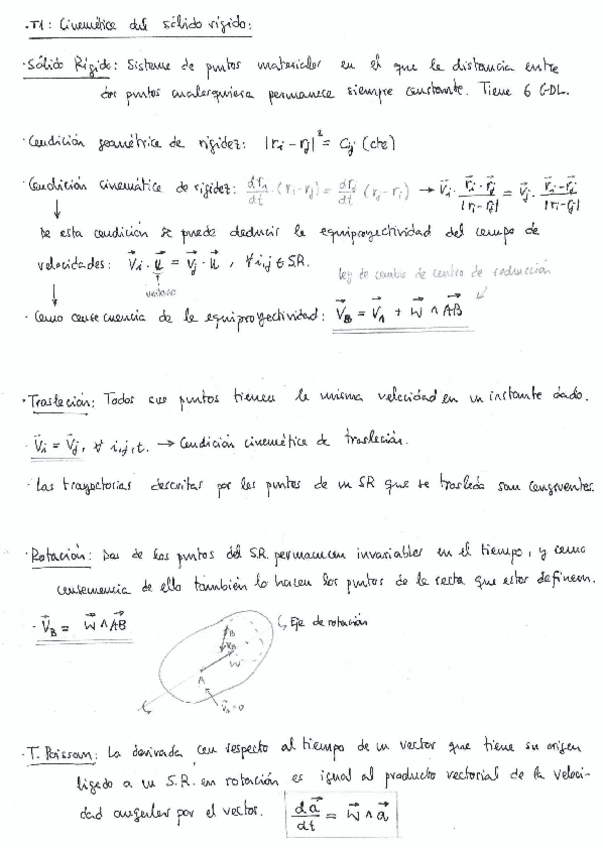 ·T1: Cinemática del sólido rígido:
·Sólido Rígido: Sistema de puntos materiales en el que la distancia entre
dos puntos cualesquiera permanece siempre constante. Tiene 6 GDL.
·Condición geométrica de rigidez: |ri - rj|² = Cij (cte)
·Condición cinemática de rigidez: dri/dt · (ri - rj) = drj/dt (ri - rj) → V⃗i · (r⃗i - r⃗j)/|ri - rj| = V⃗j · (r⃗i - r⃗j)/|ri - rj|
↓
De esta condición se puede deducir la equiproyectividad del campo de
velocidades: V⃗i · u⃗ = V⃗j · u⃗, ∀ i,j ∈ S.R.
unitario
ley de cambio de centro de reducción
↓
· Como consecuencia de la equiproyectividad: V⃗B = V⃗A + W⃗ ∧ AB⃗
·Traslación: Todos sus puntos tienen la misma velocidad en un instante dado.
· V⃗i = V⃗j, ∀ i,j,t. → Condición cinemática de traslación.
· Las trayectorias descritas por los puntos de un SR que se traslada son congruentes.
·Rotación: Dos de los puntos del S.R. permanecen invariables en el tiempo, y como
consecuencia de ello también lo hacen los puntos de la recta que estos definen.
· V⃗B = W⃗ ∧ AB⃗
Eje de rotación
B
VB
W
A
V⃗A = 0
·T. Poisson: La derivada con respecto al tiempo de un vector que tiene su origen
ligado a un S.R. en rotación es igual al producto vectorial de la veloci-
dad angular por el vector. da⃗/dt = W⃗ ∧ a⃗